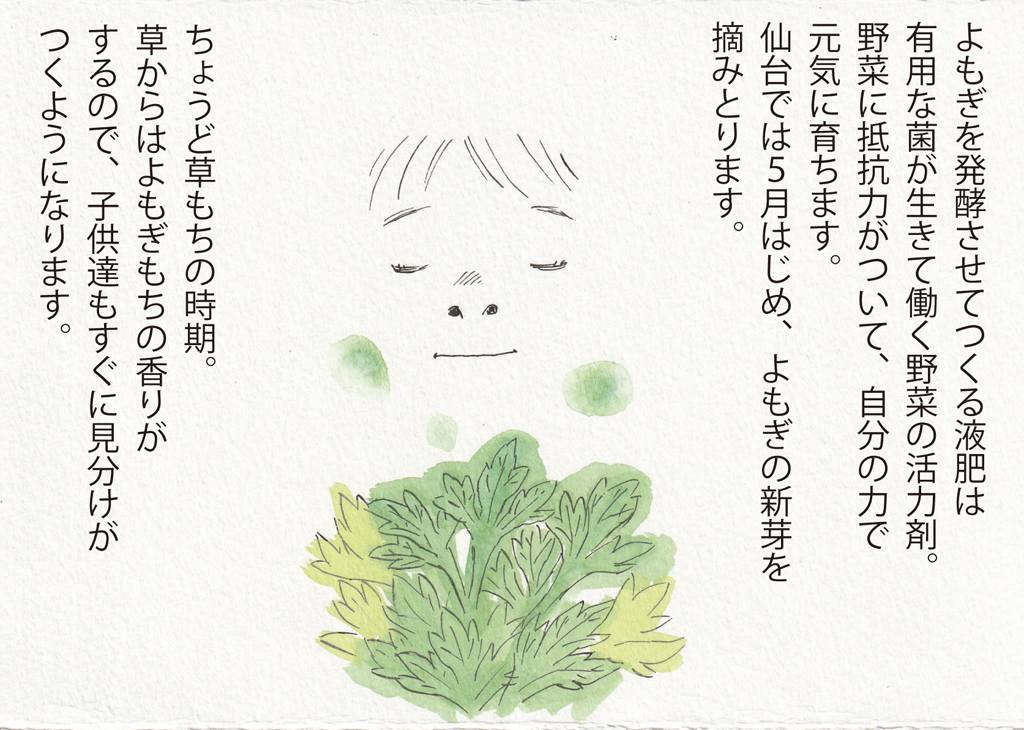 よもぎを発酵させてつくる液肥は
有用な菌が生きて働く野菜の活力剤。
野菜に抵抗力がついて、自分の力で
元気に育ちます。
仙台では５月はじめ、よもぎの新芽を
摘みとります。
ちょうど草もちの時期。
草からはよもぎもちの香りが
するので、子供達もすぐに見分けが
つくようになります。